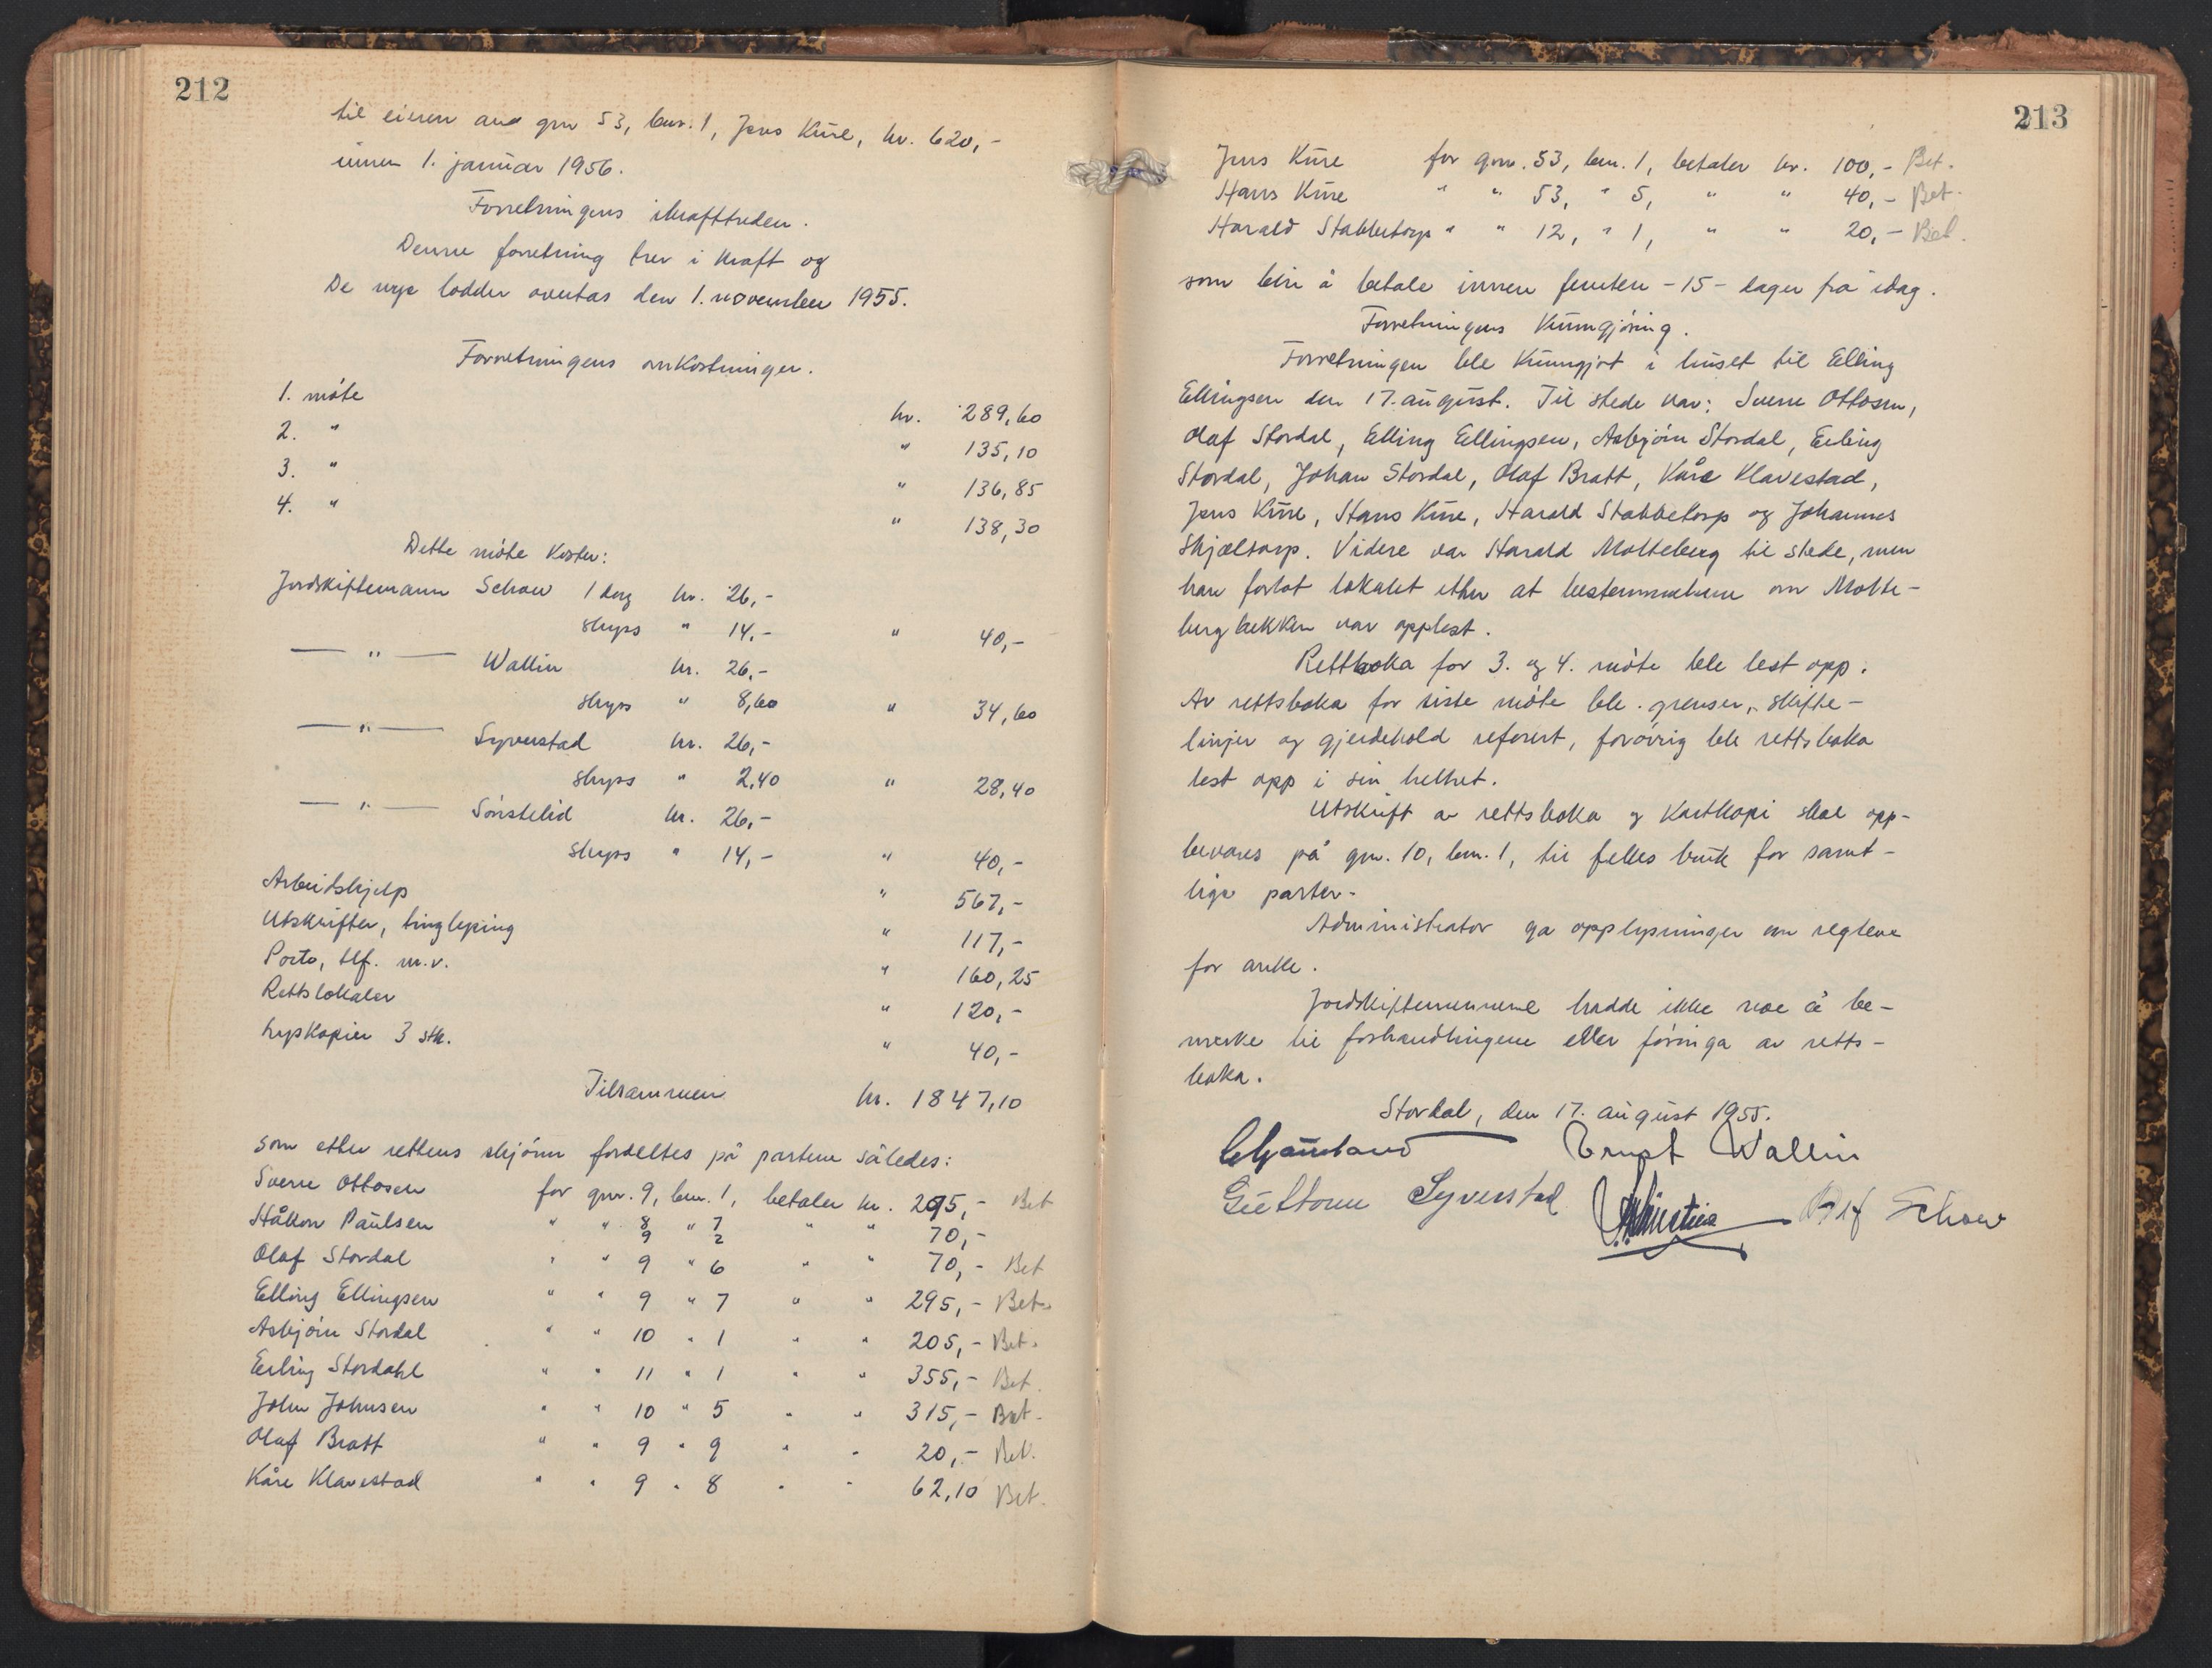 212
til eieren av gnr 53, bnr. 1, Jens Kure, kr. 620,-
innen 1. januar 1956.
Forretningens ikrafttreden.
Denne forretning trer i kraft og
de nye lodder overtas den 1. november 1955.
Forretningens omkostninger.
1. møte kr. 289,60
2. " " 135,10
3. " " 136,85
4. " " 138,30
Dette møte koster:
Jordskiftemann Schou 1 dag kr. 26,-
skyss " 14,- " 40,-
— " — Wallin kr. 26,-
skyss " 8,60 " 34,60
— " — Syverstad kr. 26,-
skyss " 2,40 " 28,40
— " — Sønstelid kr. 26,-
skyss " 14,- " 40,-
Arbeidshjelp " 567,-
Utskrifter, tinglysing " 117,-
Porto, tlf. m.v. " 160,25
Rettslokaler " 120,-
Lyskopier 3 stk. " 40,-
Tilsammen kr. 1847,10
som etter rettens skjønn fordeltes på partene således:
Sverre Ottosen for gnr. 9, bnr. 1, betaler kr. 295,- Bet
Håkon Paulsen " " 8 " 7 " " 70,-
9 2
Olaf Stordal " " 9 " 6 " " 70,- Bet
Elling Ellingsen " " 9 " 7 " " 295,- Bet.
Asbjørn Stordal " " 10 " 1 " " 205,- Bet.
Erling Stordahl " " 11 " 1 " " 355,- Bet.
John Johnsen " " 10 " 5 " " 315,- Bet.
Olaf Bratt " " 9 " 9 " " 20,- Bet.
Kåre Klavestad " " 9 " 8 " " 62,10 Bet.
213
Jens Kure for gnr. 53, bnr. 1, betaler kr. 100,- Bet.
Hans Kure " " 53, " 5, " " 40,- Bet.
Harald Stabbetorp " " 12, " 1, " " 20,- Bet.
som blir å betale innen femten -15- dager fra idag.
Forretningens kunngjøring.
Forretningen ble kunngjort i huset til Elling
Ellingsen den 17. august. Til stede var: Sverre Ottosen,
Olaf Stordal, Elling Ellingsen, Asbjørn Stordal, Erling
Stordal, Johan Stordal, Olaf Bratt, Kåre Klavestad,
Jens Kure, Hans Kure, Harald Stabbetorp og Johannes
Skjæltorp. Videre var Harald Molteberg til stede, men
han forlot lokalet etter at bestemmelsene om Molte-
bergbekken var opplest.
Rettboka for 3. og 4. møte ble lest opp.
Av rettsboka for siste møte ble grenser, skifte-
linjer og gjerdehold referert, forøvrig ble rettsboka
lest opp i sin helhet.
Utskrift av rettsboka og kartkopi skal opp-
bevares på gnr. 10, bnr. 1, til felles bruk for samt-
lige parter.
Administrator ga opplysninger om reglene
for anke.
Jordskiftemennene hadde ikke noe å be-
merke til forhandlingene eller føringa av retts-
boka.
Stordal, den 17. august 1955.
Ernst Wallin
Guttorm Syverstad Schou